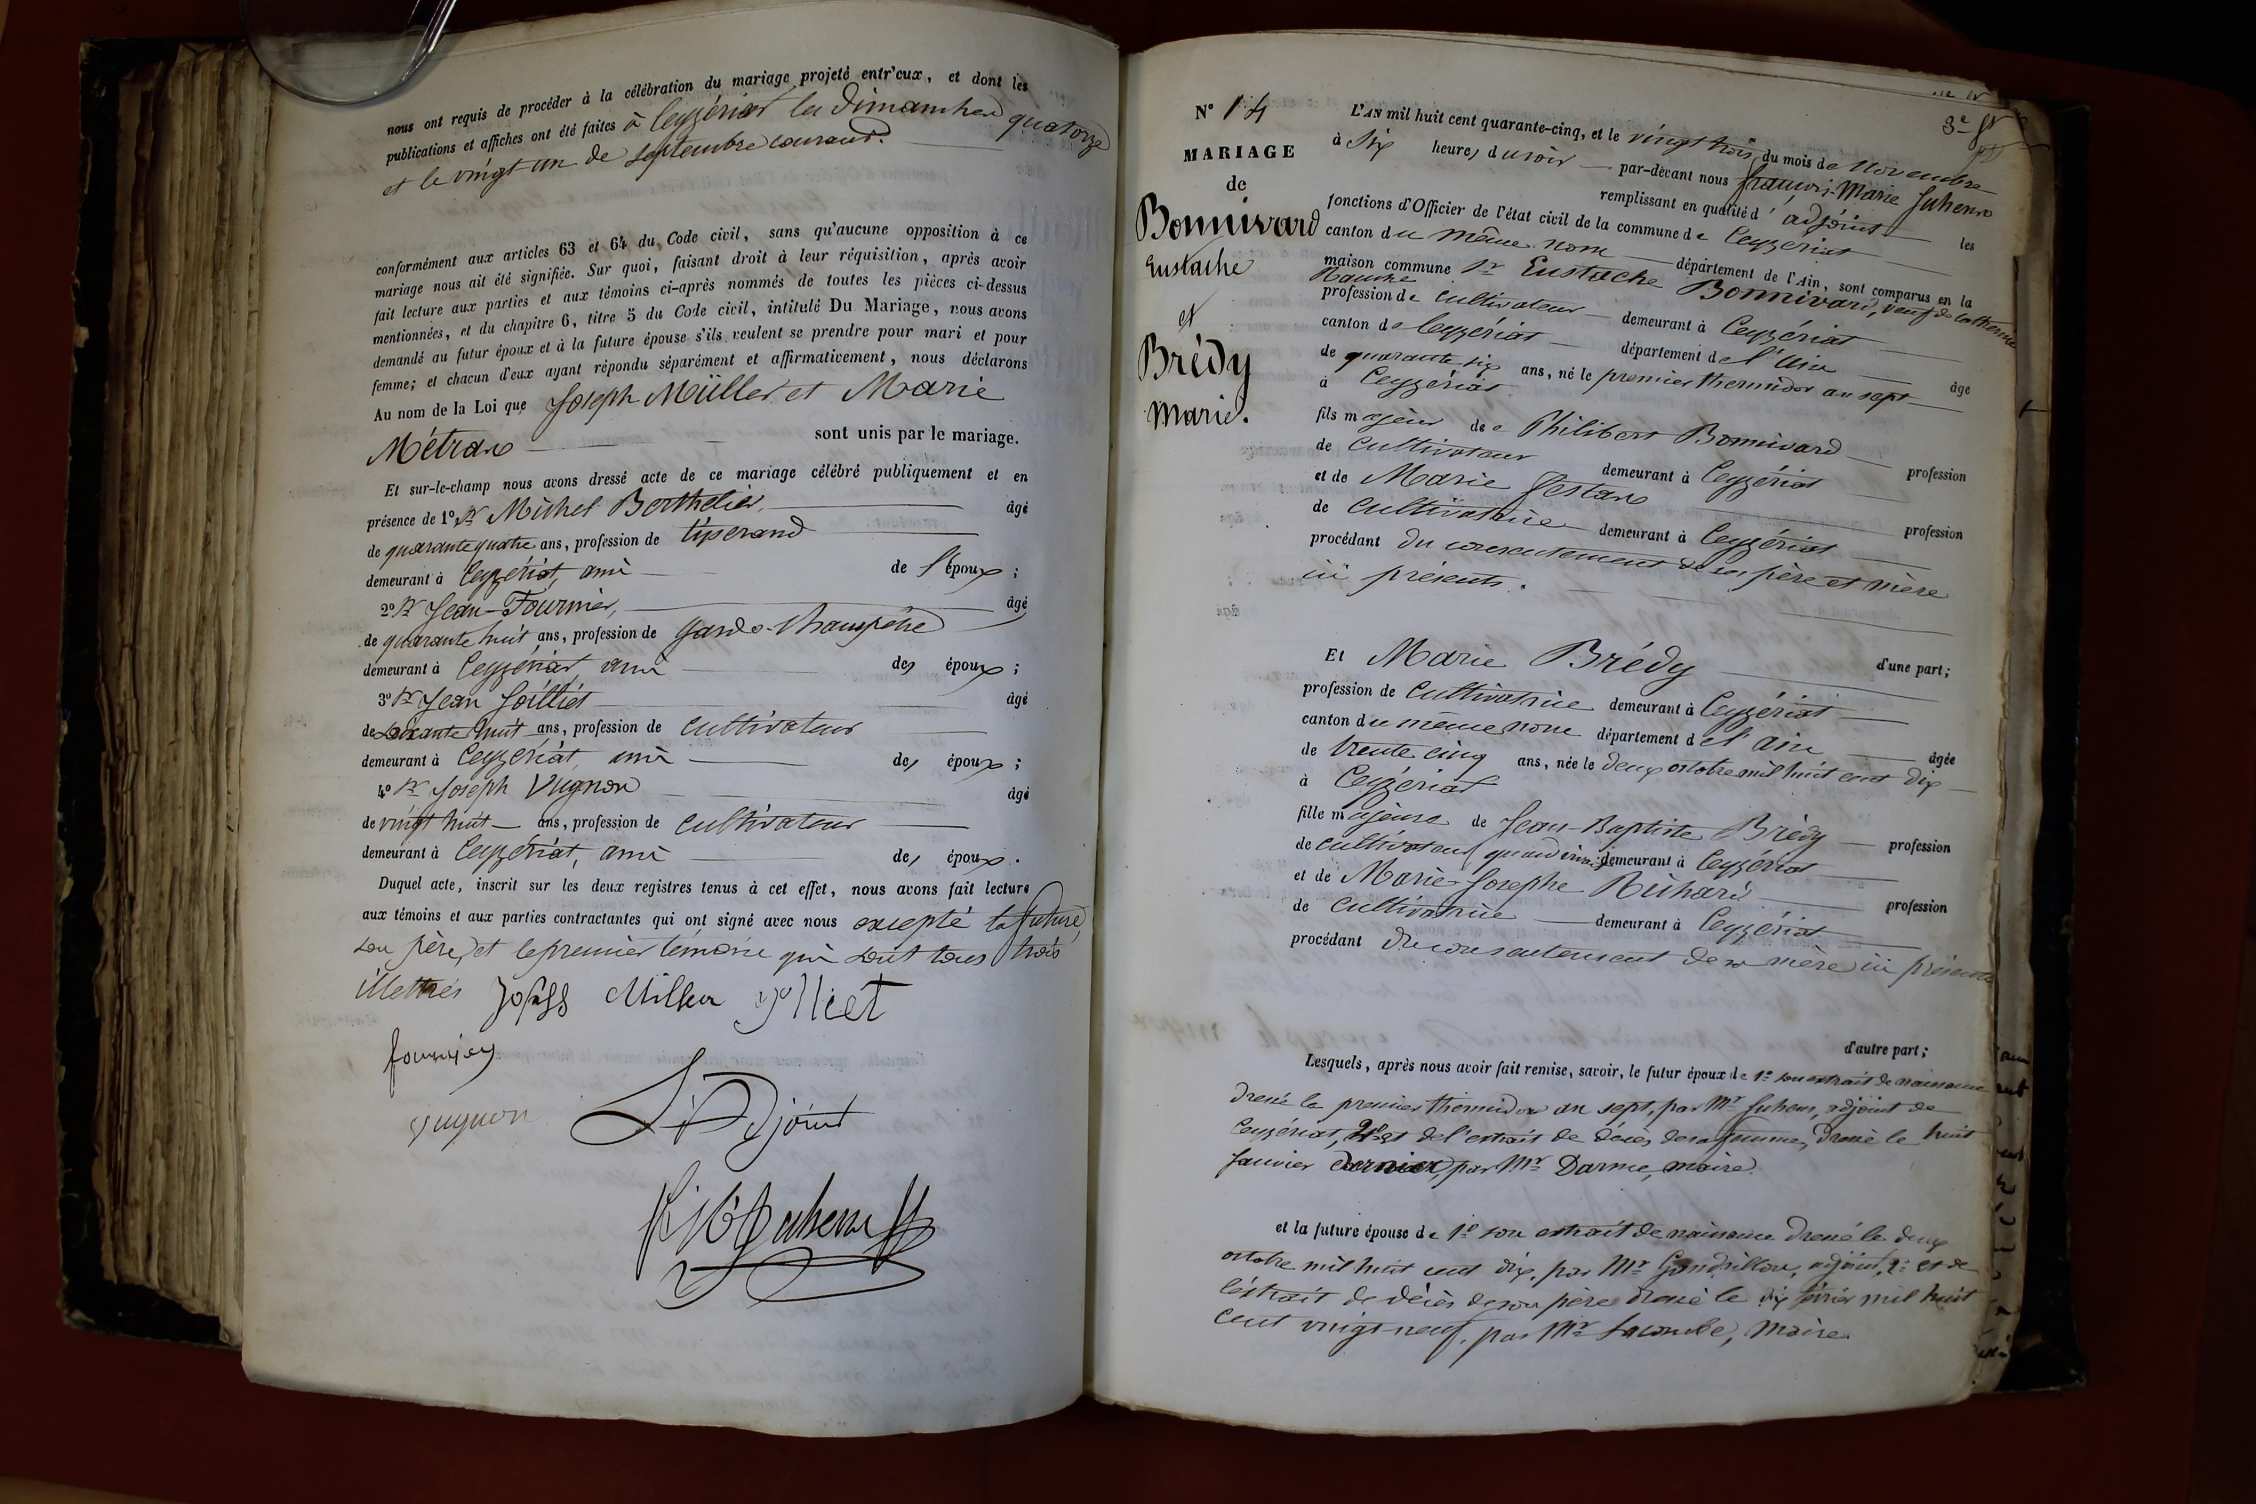 nous ont requis de procéder à la célébration du mariage projeté entr'eux, et dont les
publications et affiches ont été faites à Ceyzériat les dimanches quatorze
et le vingt un de septembre courant.
conformément aux articles 63 et 64 du Code civil, sans qu'aucune opposition à ce
mariage nous ait été signifiée. Sur quoi, faisant droit à leur réquisition, après avoir
fait lecture aux parties et aux témoins ci-après nommés de toutes les pièces ci-dessus
mentionnées, et du chapitre 6, titre 5 du Code civil, intitulé Du Mariage, nous avons
demandé au futur époux et à la future épouse s'ils veulent se prendre pour mari et pour
femme; et chacun d'eux ayant répondu séparément et affirmativement, nous déclarons
Au nom de la Loi que Joseph Müller et Marie
Métrax sont unis par le mariage.
Et sur-le-champ nous avons dressé acte de ce mariage célébré publiquement et en
présence de 1º Sr Michel Berthelier, âgé
de quarante quatre ans, profession de tisserand
demeurant à Ceyzériat, ami de l'époux;
2º Sr Jean Fournier, âgé
de quarante huit ans, profession de garde-champêtre
demeurant à Ceyzériat, ami des époux;
3º Sr Jean âgé
de soixante huit ans, profession de cultivateur
demeurant à Ceyzériat, ami des époux;
4º Sr Joseph Vugnon âgé
de vingt huit ans, profession de cultivateur
demeurant à Ceyzériat, ami des époux.
Duquel acte, inscrit sur les deux registres tenus à cet effet, nous avons fait lecture
aux témoins et aux parties contractantes qui ont signé avec nous excepté la future,
son père, et le premier témoin qui sont tous trois
illettrés
fournier
vugnon L'Adjoint
Nº 14
MARIAGE
de
Bonnivard
Eustache
et
Brédy
Marie.
L'AN mil huit cent quarante-cinq, et le vingt trois du mois de Novembre
à six heures du soir par-devant nous François Marie
remplissant en qualité d'adjoint les
fonctions d'Officier de l'état civil de la commune de Ceyzériat
canton du même nom département de l'Ain, sont comparus en la
maison commune Sr Eustache Bonnivard, veuf de Catherine
profession de cultivateur demeurant à Ceyzériat
canton de Ceyzériat département de l'Ain âgé
de quarante six ans, né le premier thermidor an sept
à Ceyzériat
fils majeur de Philibert Bonnivard profession
de cultivateur demeurant à Ceyzériat
et de Marie profession
de cultivatrice demeurant à Ceyzériat
procédant du consentement de ses père et mère
ici présents.
d'une part;
Et Marie Brédy
profession de cultivatrice demeurant à Ceyzériat
canton du même nom département de l'Ain âgée
de trente cinq ans, née le deux octobre mil huit cent dix
à Ceyzériat
fille majeure de Jean-Baptiste Brédy profession
de cultivateur quand vivait demeurant à Ceyzériat
et de Marie Josephe Richard profession
de cultivatrice demeurant à Ceyzériat
procédant du consentement de sa mère ici présente
d'autre part;
Lesquels, après nous avoir fait remise, savoir, le futur époux de 1º son extrait de naissance
dressé le premier thermidor an sept, par Mr adjoint de
Ceyzériat, 2º et de l'extrait de décès de sa femme, dressé le huit
janvier dernier, par Mr Darme, maire.
et la future épouse de 1º son extrait de naissance dressé le deux
octobre mil huit cent dix, par Mr Gandrillon, adjoint, 2º et de
l'extrait de décès de son père dressé le dix février mil huit
cent vingt neuf, par Mr Lacombe, Maire.